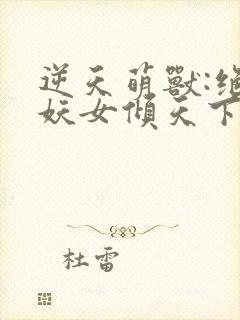 逆天萌獸:絕
妖女傾天下
杜雷